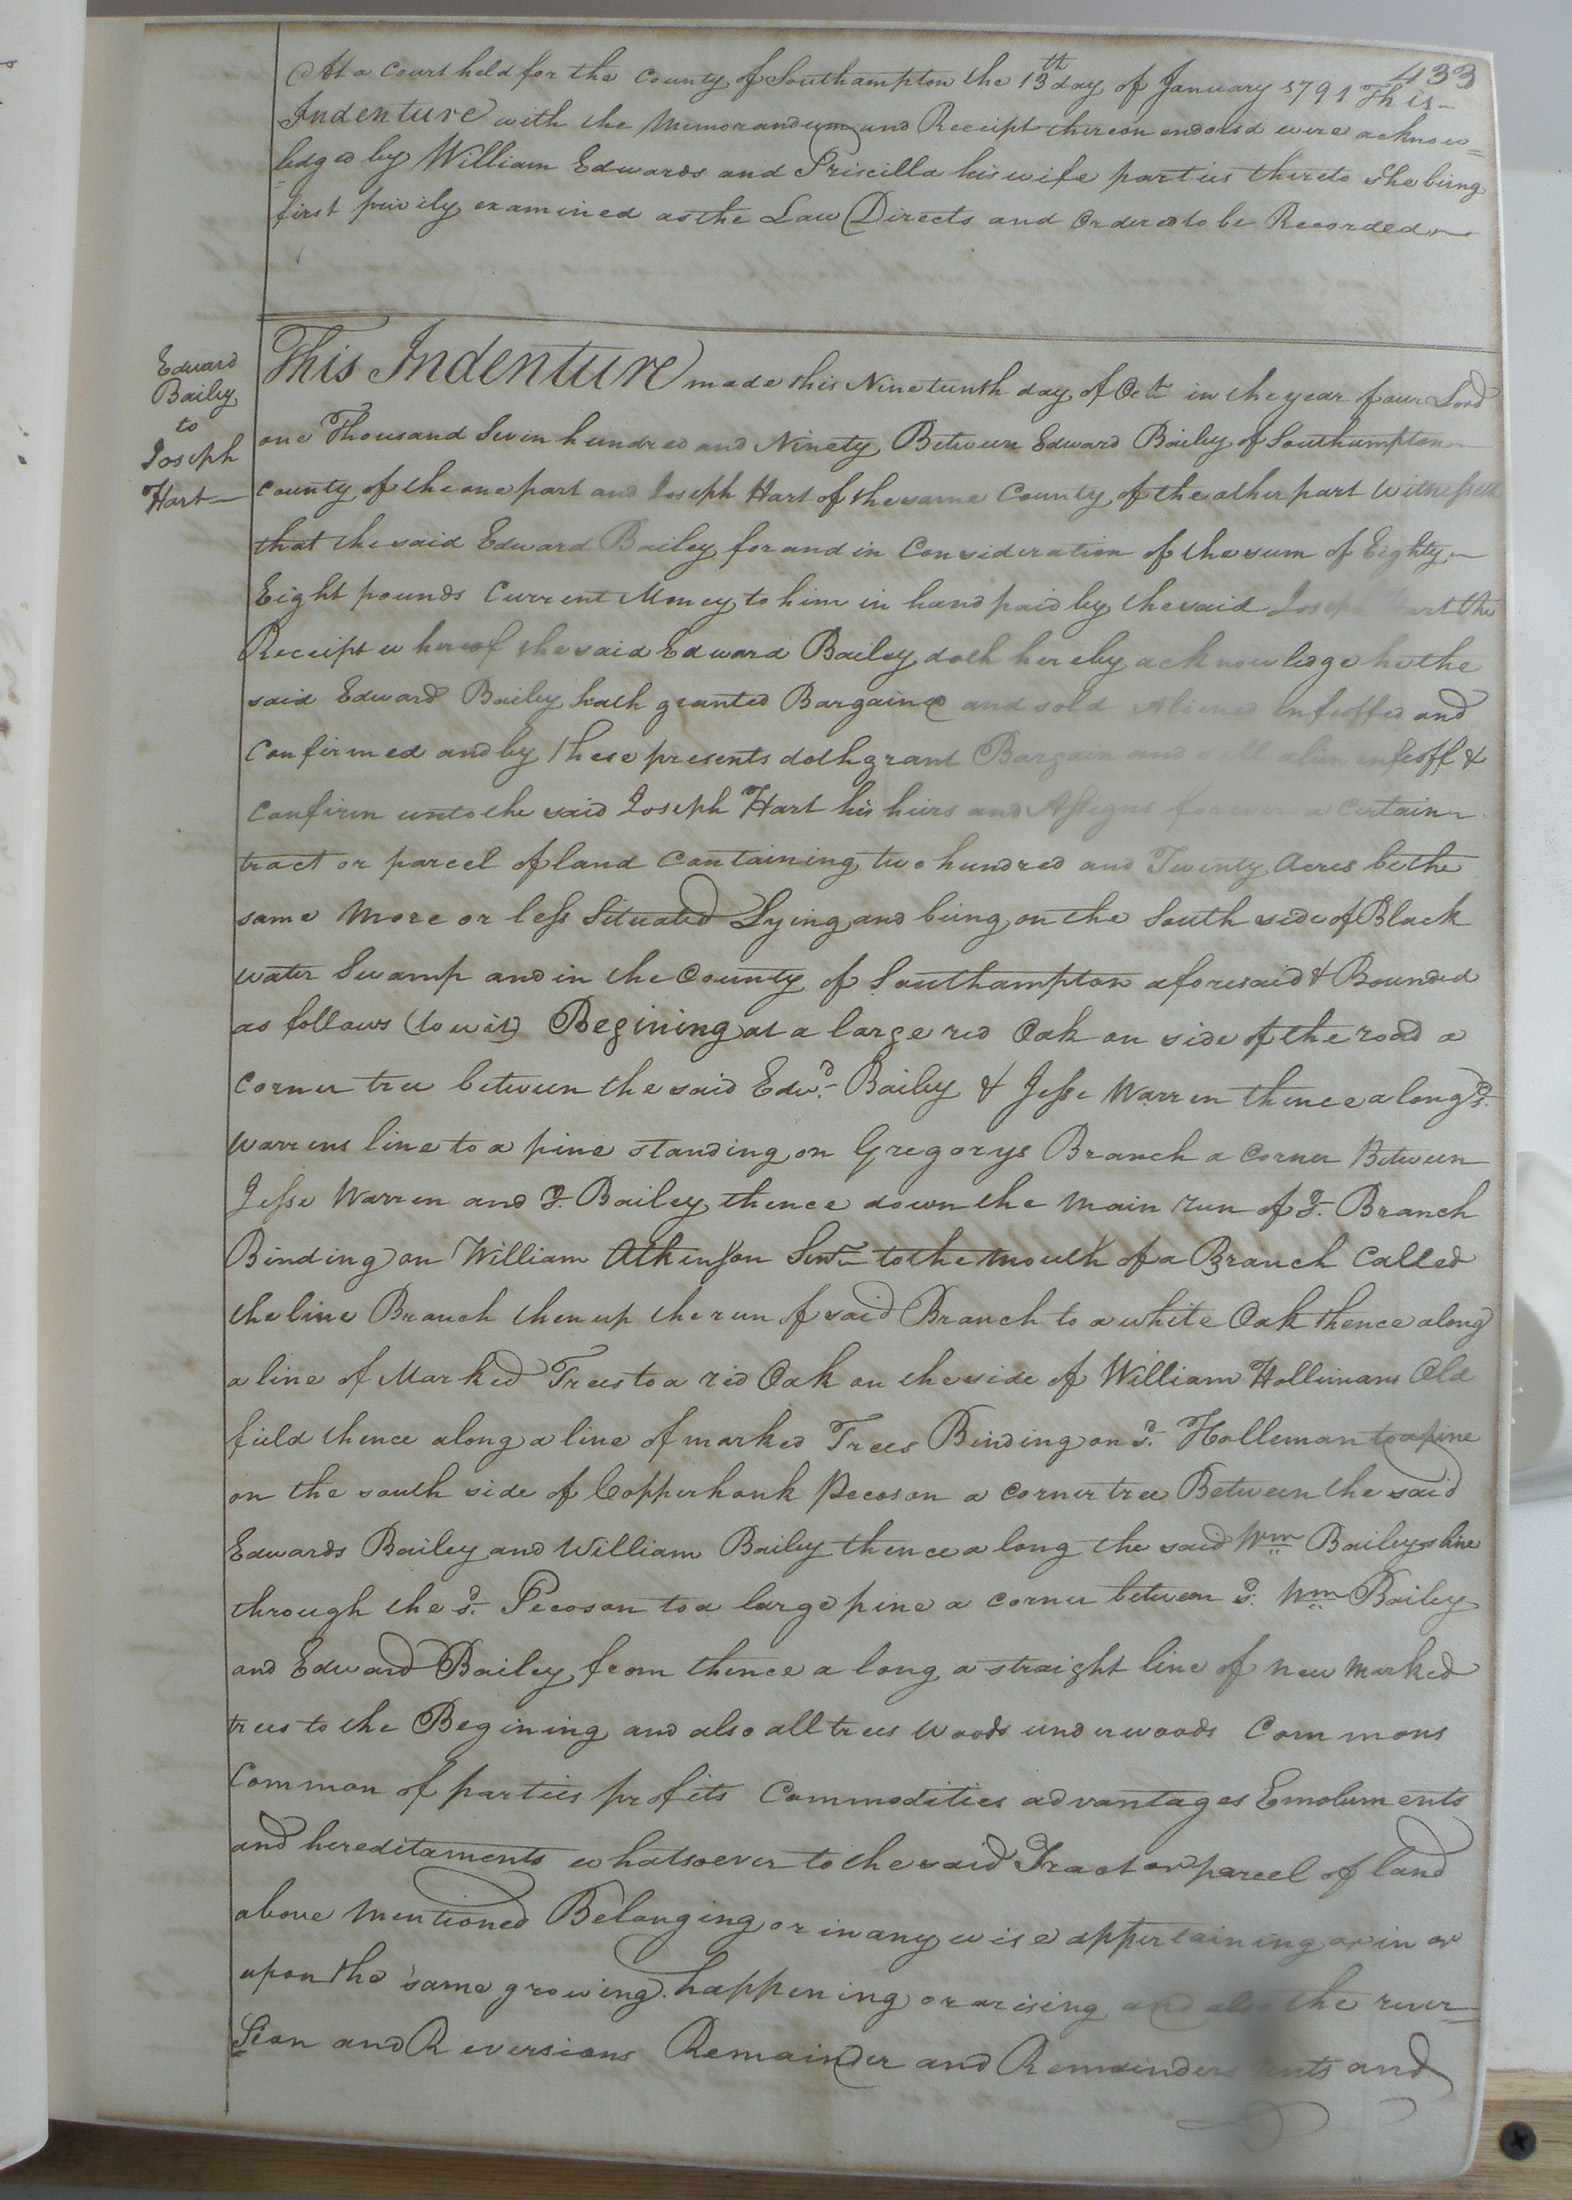 433
At a Court held for the County of Southampton the 13th day of January 1791 This
Indenture with the Memorandum and Receipt thereon endorsd were acknow=
=ledged by William Edwards and Priscilla his wife parties thereto She being
first privily examined as the Law Directs and Ordered to be Recorded
Edward
Bailey
to
Joseph
Hart
This Indenture made this Nineteenth day of Octr in the year of our Lord
one Thousand Seven hundred and Ninety Between Edward Bailey of Southampton
County of the one part and Joseph Hart of the same County of the other part Witnesseth
that the said Edward Bailey for and in Consideration of the sum of Eighty
Eight pounds Current Money to him in hand paid by the said Joseph Hart the
Receipt whereof the said Edward Bailey doth hereby acknowledge he the
said Edward Bailey hath granted Bargaind and sold Aliened Enfeoffed and
Confirmed and by these presents doth grant Bargain and sell alien enfeoff &
Confirm unto the said Joseph Hart his heirs and Assigns forever a Certain
tract or parcel of land Containing two hundred and Twenty Acres be the
same More or less Situated Lying and being on the South side of Black
water Swamp and in the County of Southampton aforesaid & Bounded
as follows (to wit) Begining at a large red Oak on side of the road a
Corner tree between the said Edwd. Bailey & Jesse Warren thence along sd.
Warrens line to a pine standing on Gregorys Branch a Corner Between
Jesse Warren and sd. Bailey thence down the Main run of sd. Branch
Binding on William Atkinson Senr to the Mouth of a Branch Called
the line Branch then up the run of said Branch to a white Oak thence along
a line of Marked Trees to a red Oak on the side of William Hollimans Old
field thence along a line of marked Trees Binding on sd. Holleman to a pine
on the south side of Copperhonk Pecoson a Corner tree Between the said
Edwards Bailey and William Bailey thence along the said Wm Baileys line
through the sd. Pecoson to a large pine a corner between sd. Wm Bailey
and Edward Bailey from thence a long a straight line of new Marked
trees to the Begining and also all trees Woods underwoods Commons
Common of parties profits Commodities advantages Emoluments
and hereditaments whatsoever to the said Tract or parcel of land
above Mentioned Belonging or in any wise appertaining or in or
upon the same growing happening or arising and also the rever=
Sion and Reversions Remainder and Remainders and